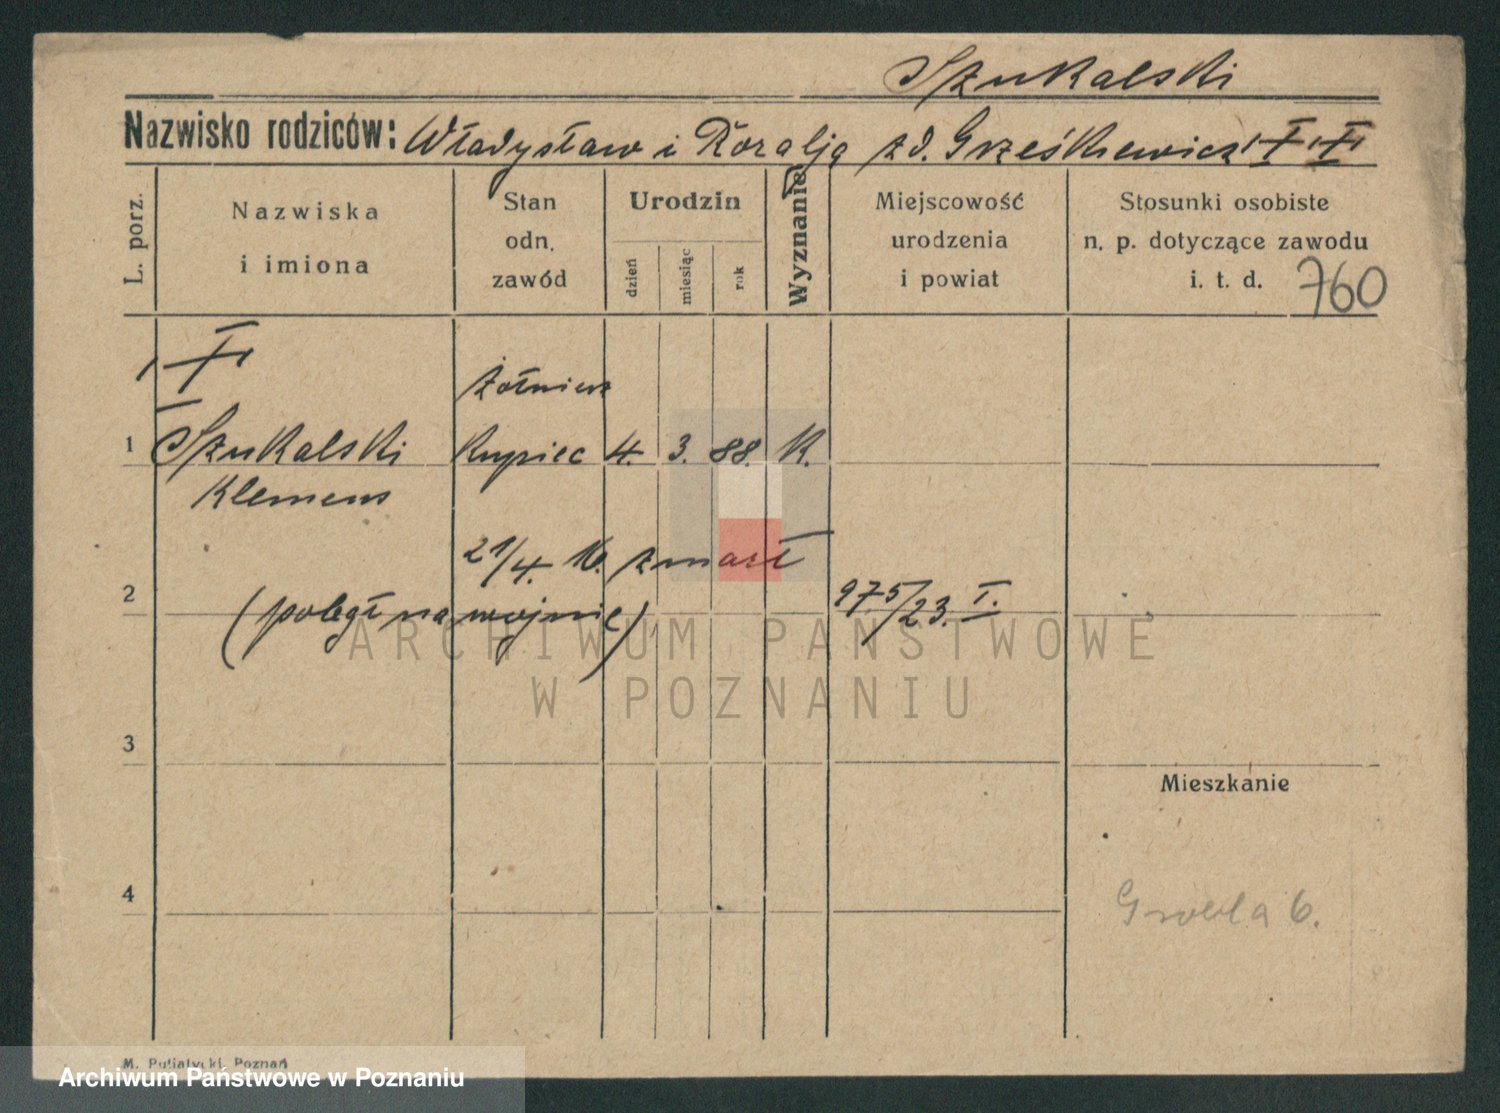 Szukalski
Nazwisko rodziców: Władysław i Rozalja zd. Grześkiewicz
L. porz.
Nazwiska
i imiona
Stan
odn.
zawód
Urodzin
dzień
miesiąc
rok
Wyznanie
Miejscowość
urodzenia
i powiat
Stosunki osobiste
n. p. dotyczące zawodu
i. t. d. 760
żołnierz
1 Szukalski Kupiec 4. 3. 88. K.
Klemens
21/4. 16. zmarł
2 (poległ na wojnie) 975/23. I.
ARCHIWUM PAŃSTWOWE
W POZNANIU
3
Mieszkanie
4
Grobla 6.
M. Putiatycki, Poznań
Archiwum Państwowe w Poznaniu